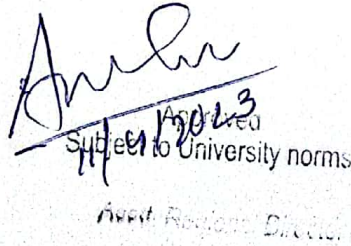 11/4/2023
Approved
Subject to University norms
Asstt. Regional Director